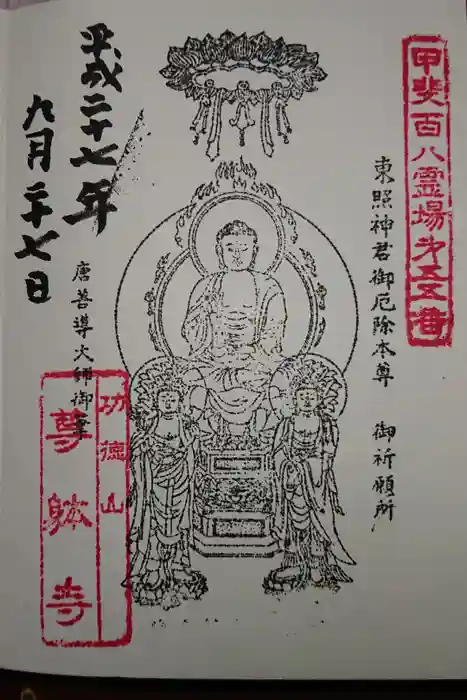 甲斐百八霊場第五五番
東照神君御厄除本尊 御祈願所
平成二十七年
九月二十七日
唐善導大師御筆
功徳山
尊躰寺